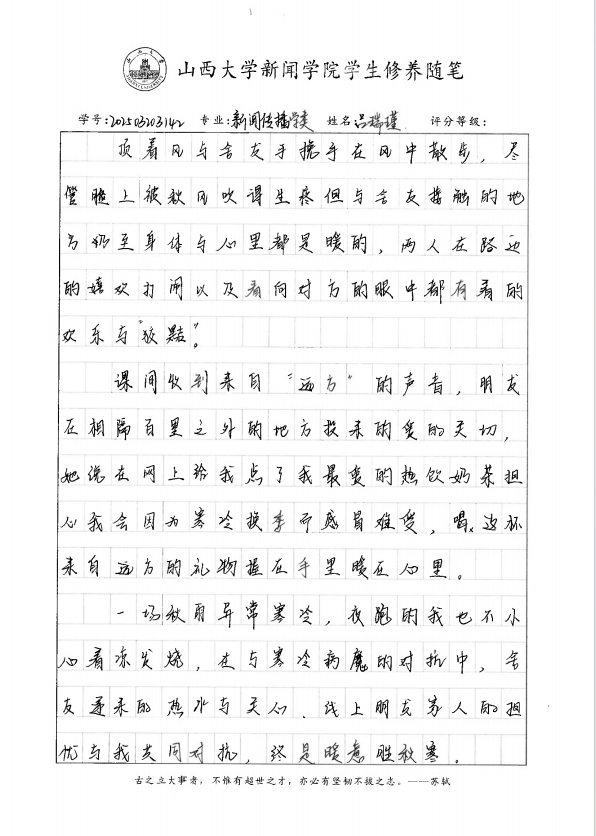 山西大学新闻学院学生修养随笔
学号:202503203142 专业:新闻传播学类 姓名:吕瑞瑾 评分等级:
顶着风与舍友手挽手在风中散步，尽
管脸上被秋风吹得生疼但与舍友接触的地
方仍至身体与心里都是暖的，两人在路边
的嬉欢打闹以及看向对方的眼中都有着的
欢乐与“狡黠”。
课间收到来自“远方”的声音，朋友
在相隔百里之外的地方投来的爱的关切，
她说在网上给我点了我最爱的热饮奶茶担
心我会因为寒冷换季而感冒难受，喝这杯
来自远方的礼物握在手里暖在心里。
一场秋雨异常寒冷，夜跑的我也不小
心着凉发烧，在与寒冷病魔的对抗中，舍
友递来的热水与关心、线上朋友家人的担
忧与我共同对抗，终是暖意胜秋寒。
古之立大事者，不惟有超世之才，亦必有坚韧不拔之志。——苏轼